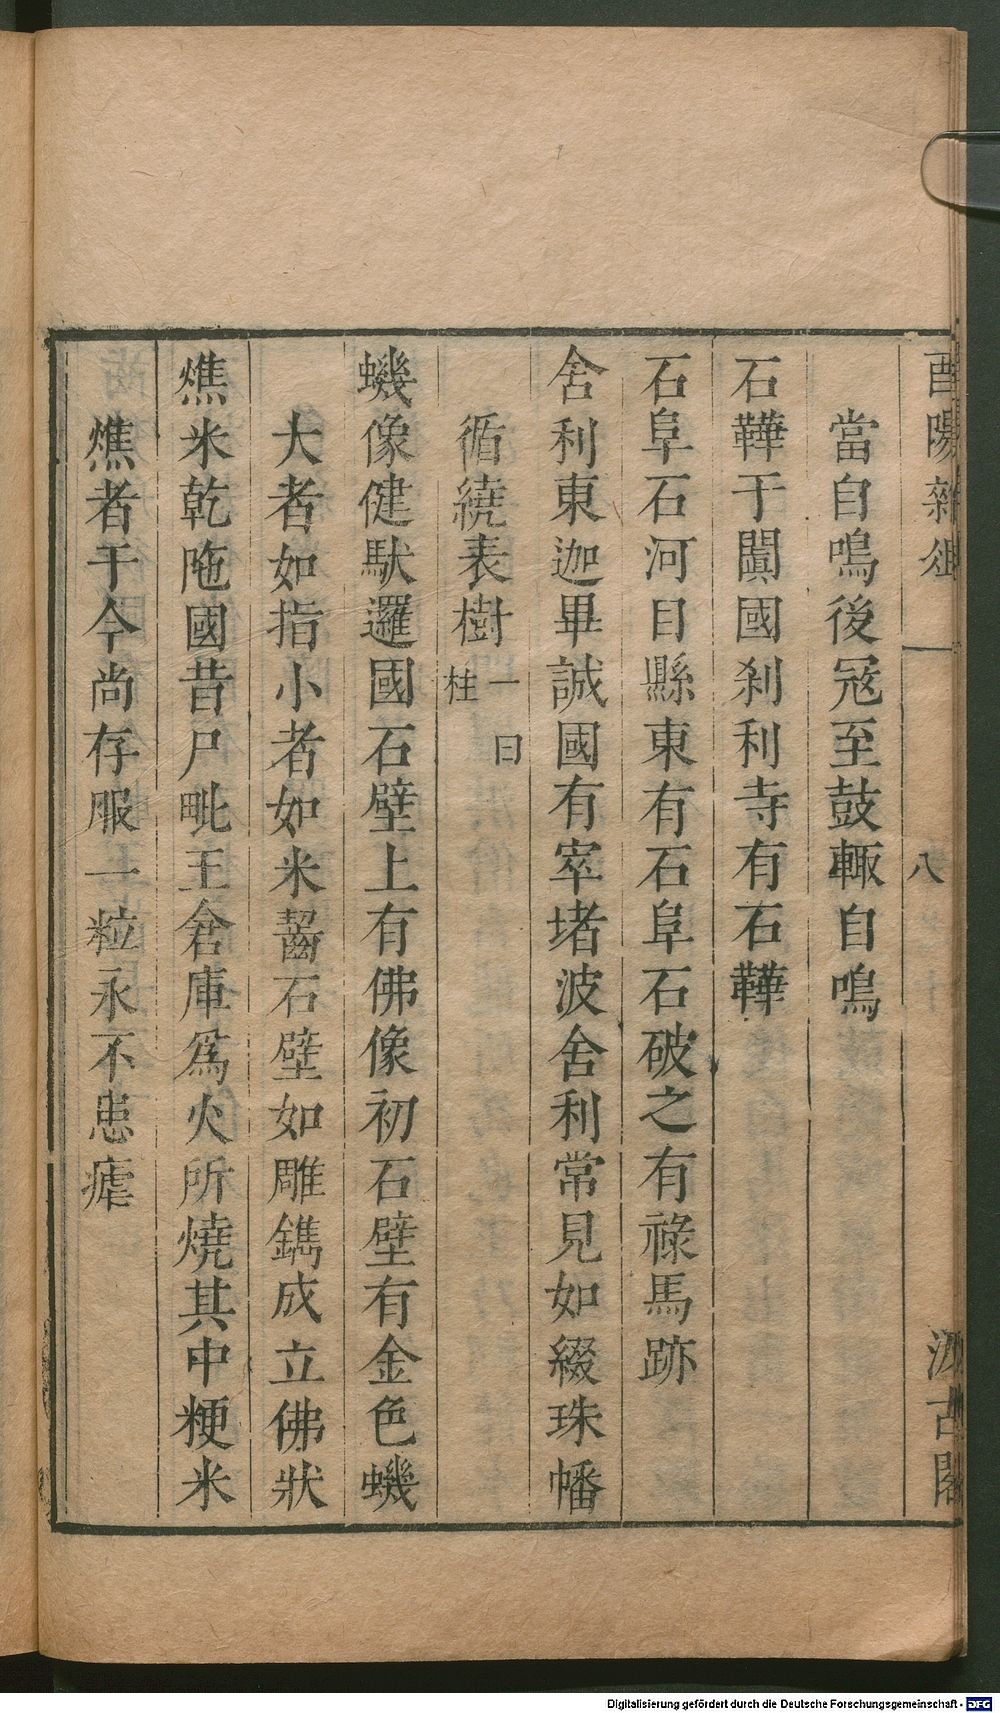 酉陽雜俎 八 汲古閣
當自鳴後冦至鼓輙自鳴
石鞾于闐國刹利寺有石鞾
石阜石河目縣東有石阜石破之有祿馬跡
舍利東迦畢誠國有窣堵波舍利常見如綴珠幡
循繞表樹一曰柱
蟣像健馱邏國石壁上有佛像初石壁有金色蟣
大者如指小者如米齧石壁如雕鐫成立佛狀
燋米乾陁國昔尸毗王倉庫爲火所燒其中粳米
燋者于今尚存服一粒永不患瘧
Digitalisierung gefördert durch die Deutsche Forschungsgemeinschaft - DFG